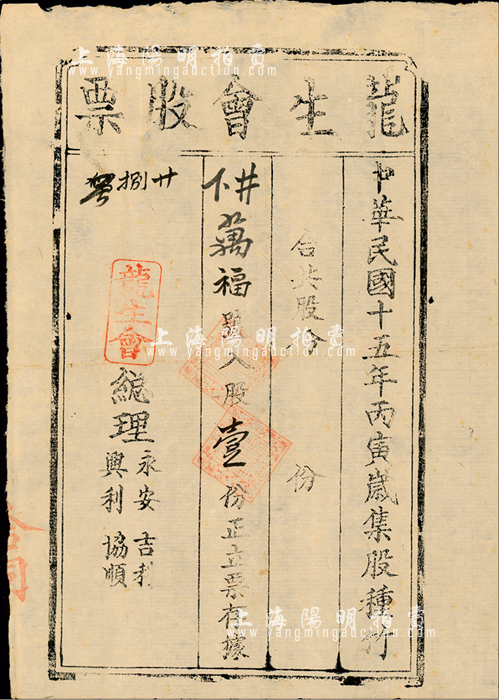 龍生會股票
中華民國十五年丙寅歲集股種打
合共股會
份
下井萬福 入股壹份正立票存據
廿捌號
龍生會
總理
永安 吉利
興利 協順
合同
上海陽明拍賣
www.yangmingauction.com
上海陽明拍賣
上海陽明拍賣
www.yangmingauction.com